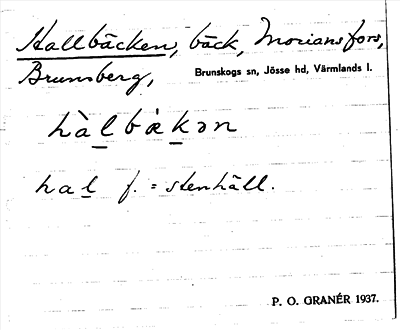 Hallbäcken, bäck, Moriansfors,
Brunsberg, Brunskogs sn, Jösse hd, Värmlands l.
hàl̲bæ̀k̲ən
hal̲ f. = stenhäll.
P. O. GRANÉR 1937.